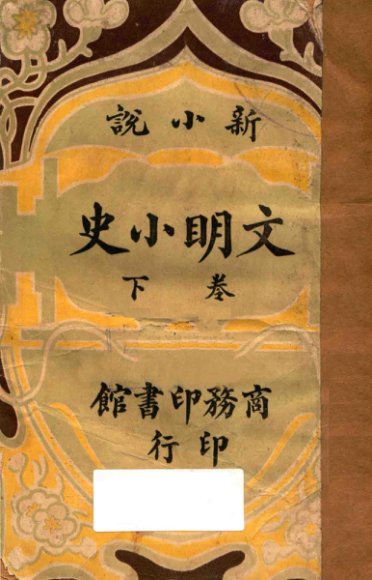 新小說
文明小史
卷下
商務印書館
印行